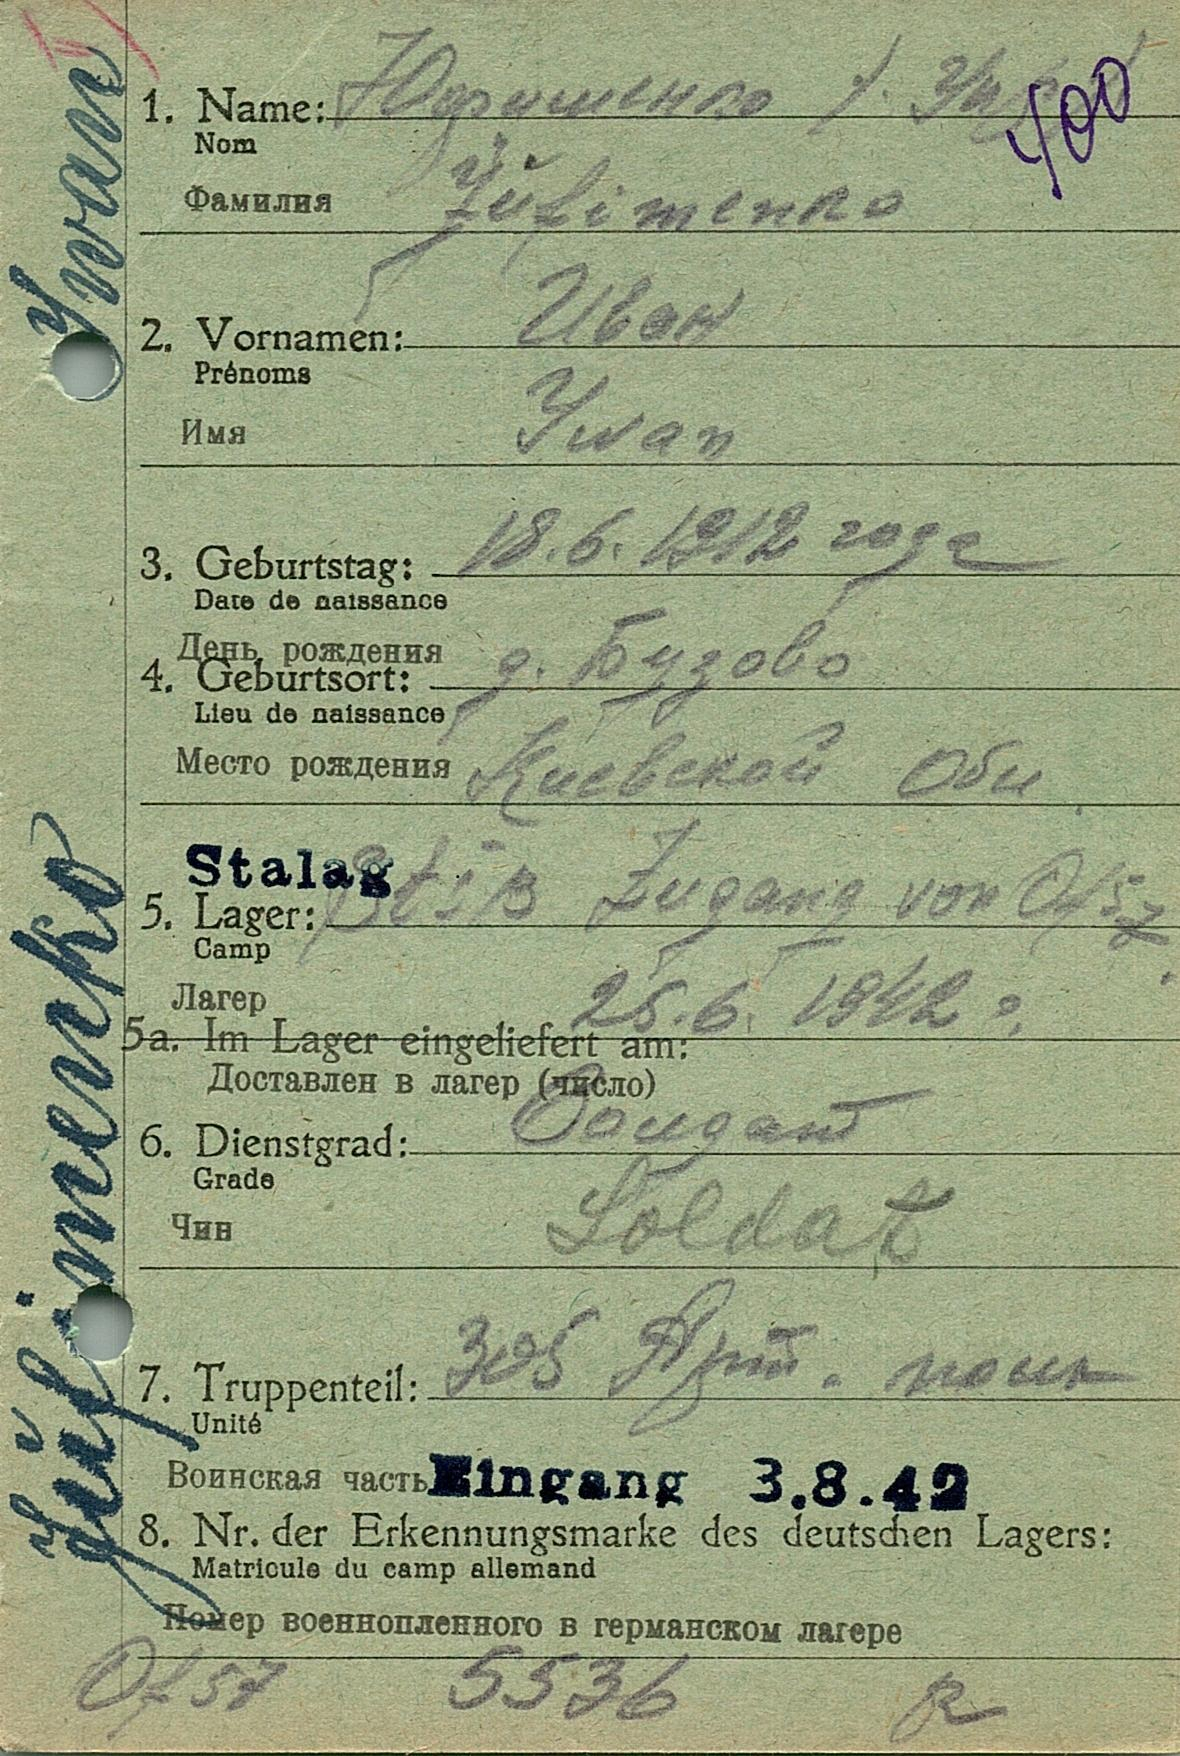 400
1. Name:
Nom
Фамилия Jüfimenko
2. Vornamen: Иван
Prénoms
Имя Iwan
3. Geburtstag: 18.6.1912 года
Date de naissance
День рождения
4. Geburtsort: д. Бузово
Lieu de naissance
Место рождения Киевской Обл
Stalag
5. Lager: Zugang von Of 57
Camp
Лагер 25.6.1942 г.
5a. Im Lager eingeliefert am:
Доставлен в лагер (число)
6. Dienstgrad: Солдат
Grade
Чин Soldat
7. Truppenteil: 305 Арт. полк
Unité
Воинская часть Eingang 3.8.42
8. Nr. der Erkennungsmarke des deutschen Lagers:
Matricule du camp allemand
Номер военнопленного в германском лагере
Of 57 5536 R
Jüfimenko Iwan